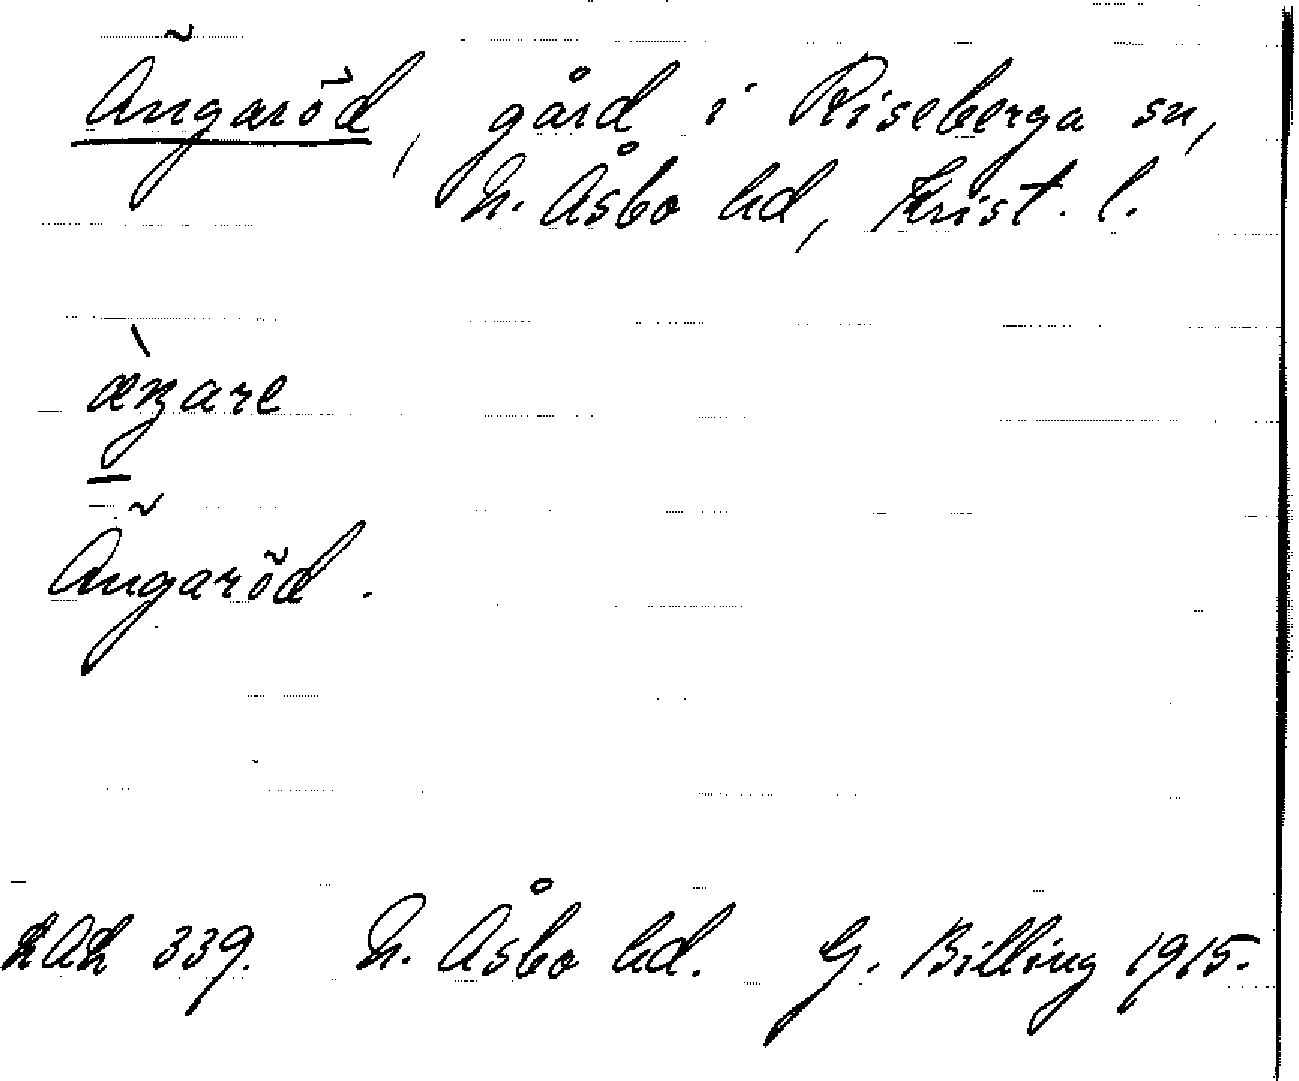 Ängaröd, gård i Riseberga sn,
N. Åsbo hd, Krist. l.
æ̀ŋare
Ängaröd.
LAL 339. N. Åsbo hd. G. Billing 1915.